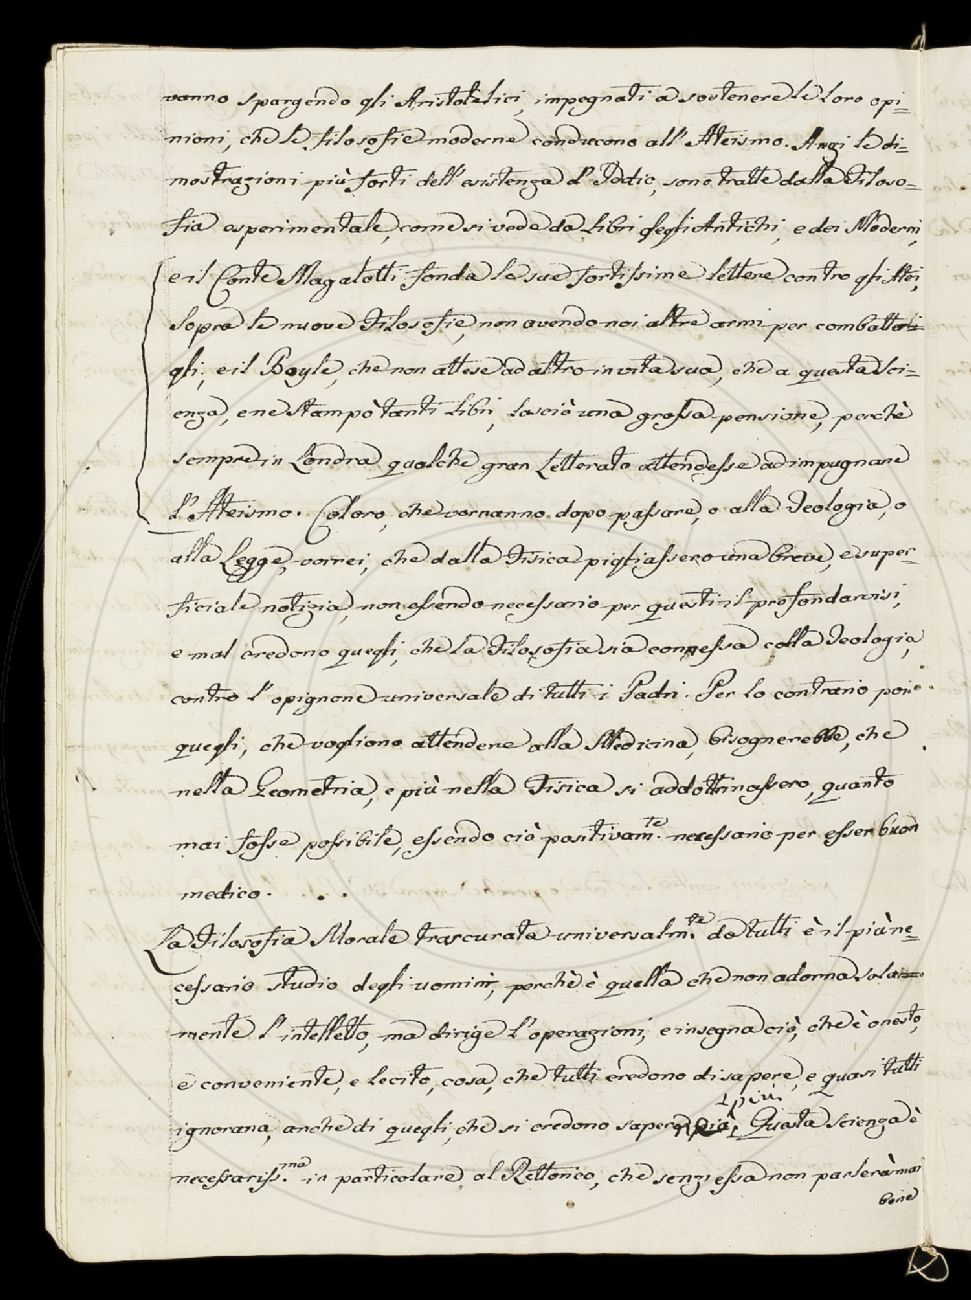 vanno spargendo gli Aristotelici, impegnati a sostenere le loro opi=
nioni, che le filosofie moderne conducono all' Ateismo. Anzi le di=
mostrazioni più forti dell'esistenza d'Iddio, sono tratte dalla Filoso=
fia esperimentale, come si vede da Libri degli Antichi, e dei Moderni,
e il Conte Magalotti fonda le sue fortissime lettere contro gli Atei,
sopra le nuove Filosofie, non avendo noi altre armi per combatterli=
gli, e il Boyle, che non attese ad altro in vita sua, che a questa sci=
enza, e ne stampò tanti Libri, lasciò una grossa pensione, perchè
sempre in Londra qualche gran Letterato attendesse ad impugnare
l'Ateismo. Coloro, che vorranno dopo passare, o alla Teologia, o
alla Legge, vorrei, che dalla Fisica pigliassero una breve, e super=
ficiale notizia, non essendo necessario per questi il profondarvisi,
e mal credono quegli, che la Filosofia sia connessa colla Teologia,
contro l'opignone universale di tutti i Padri. Per lo contrario poi
quegli, che vogliono attendere alla Medicina, bisognerebbe, che
nella Geometria, e più nella Fisica si addottrinassero, quanto
mai fosse possibile, essendo ciò positivam.te necessario per esser buon
medico.
La Filosofia Morale trascurata universalm.te da tutti è il più ne=
cessario studio degli uomini, perchè è quella che non adorna sola=
mente l'intelletto, ma dirige l'operazioni, e insegna ciò, che è onesto,
e conveniente, e lecito, cosa, che tutti credono di sapere, e quasi tutti
ignorana, anche di quegli, che si credono sapere più. Questa scienza è
necessariss.ma in particolare al Rettorico, che senz'essa non parlerà mai
bene